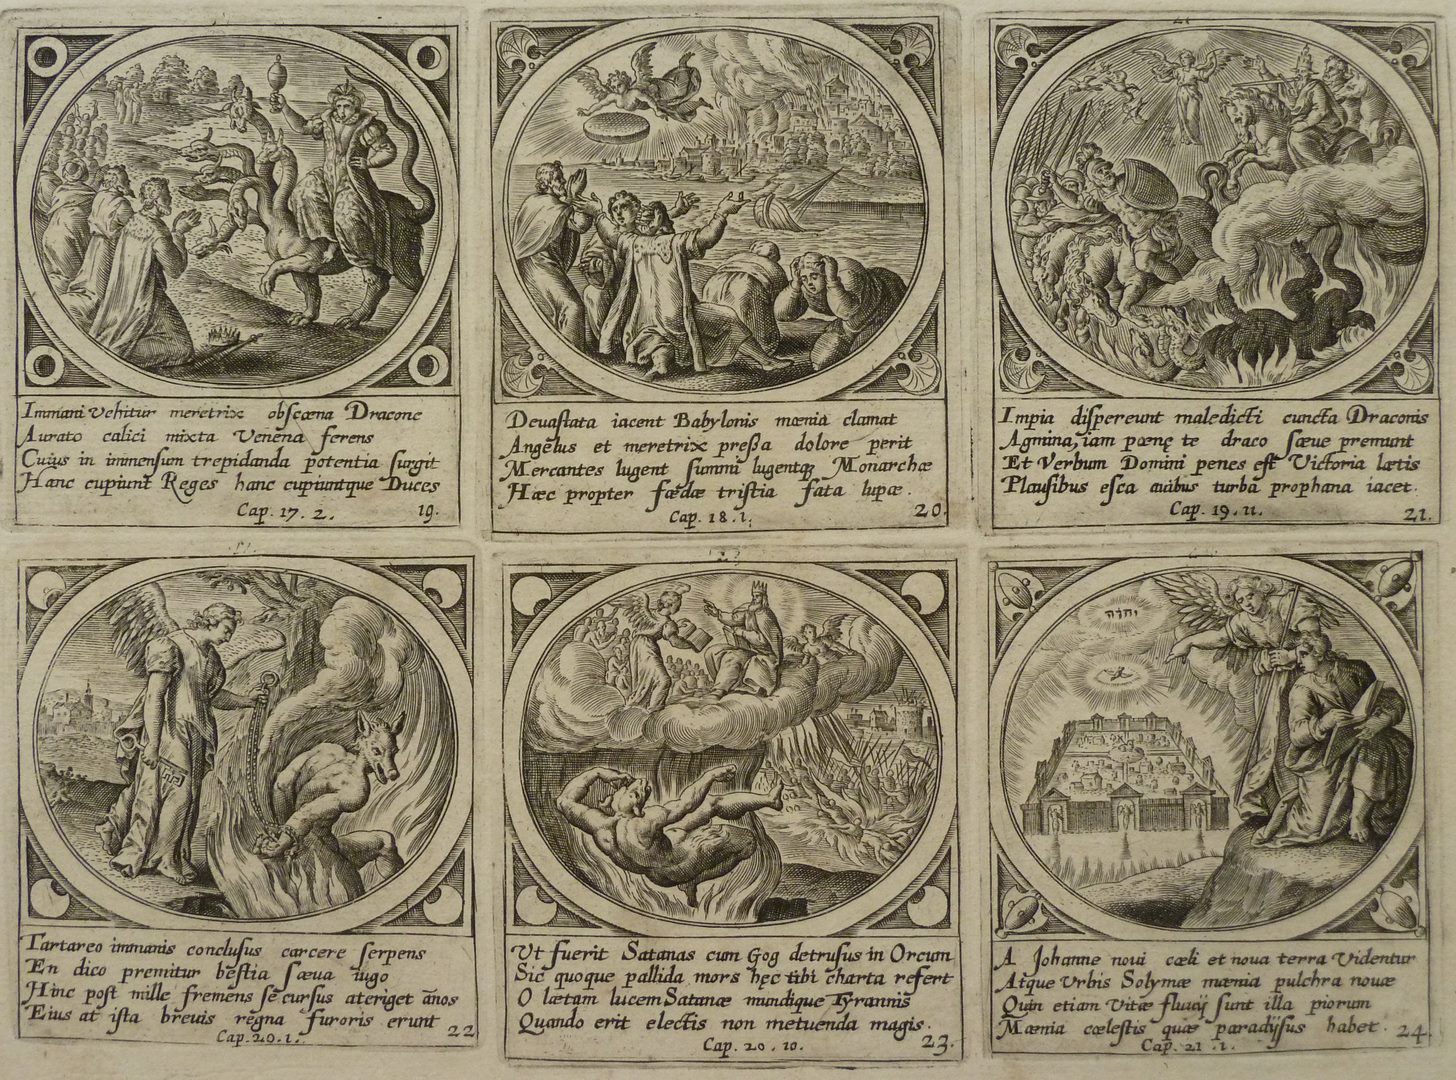 Immani vehitur meretrix obscœna Dracone
Aurato calici mixta Venena ferens
Cuius in immensum trepidanda potentia surgit
Hanc cupiunt Reges hanc cupiuntque Duces
Cap. 17. 2. 19.
Deuastata iacent Babylonis mœnia clamat
Angelus et meretrix pressa dolore perit
Mercantes lugent summi lugentq; Monarchæ
Hæc propter fœdæ tristia fata lupæ.
Cap. 18. 1. 20.
Impia dispereunt maledicti cuncta Draconis
Agmina, iam pœnę te draco sæue premunt
Et Verbum Domini penes est Victoria lætis
Plausibus esca auibus turba prophana iacet.
Cap. 19. 11. 21.
Tartareo immanis conclusus carcere serpens
En dico premitur bestia sæua iugo
Hinc post mille fremens se cursus ateriget ãnos
Eius at ista breuis regna furoris erunt
Cap. 20. 1. 22
Vt fuerit Satanas cum Gog detrusus in Orcum
Sic quoque pallida mors hęc tibi charta refert
O lætam lucem Satanæ mundique Tyrannis
Quando erit electis non metuenda magis.
Cap. 20. 10. 23.
יהוה
A Johanne noui cœli et noua terra Videntur
Atque Vrbis Solymæ mœnia pulchra nouæ
Quin etiam Vitæ fluuij sunt illa piorum
Mœnia cœlestis quæ paradijsus habet.
Cap. 21. 1. 24.